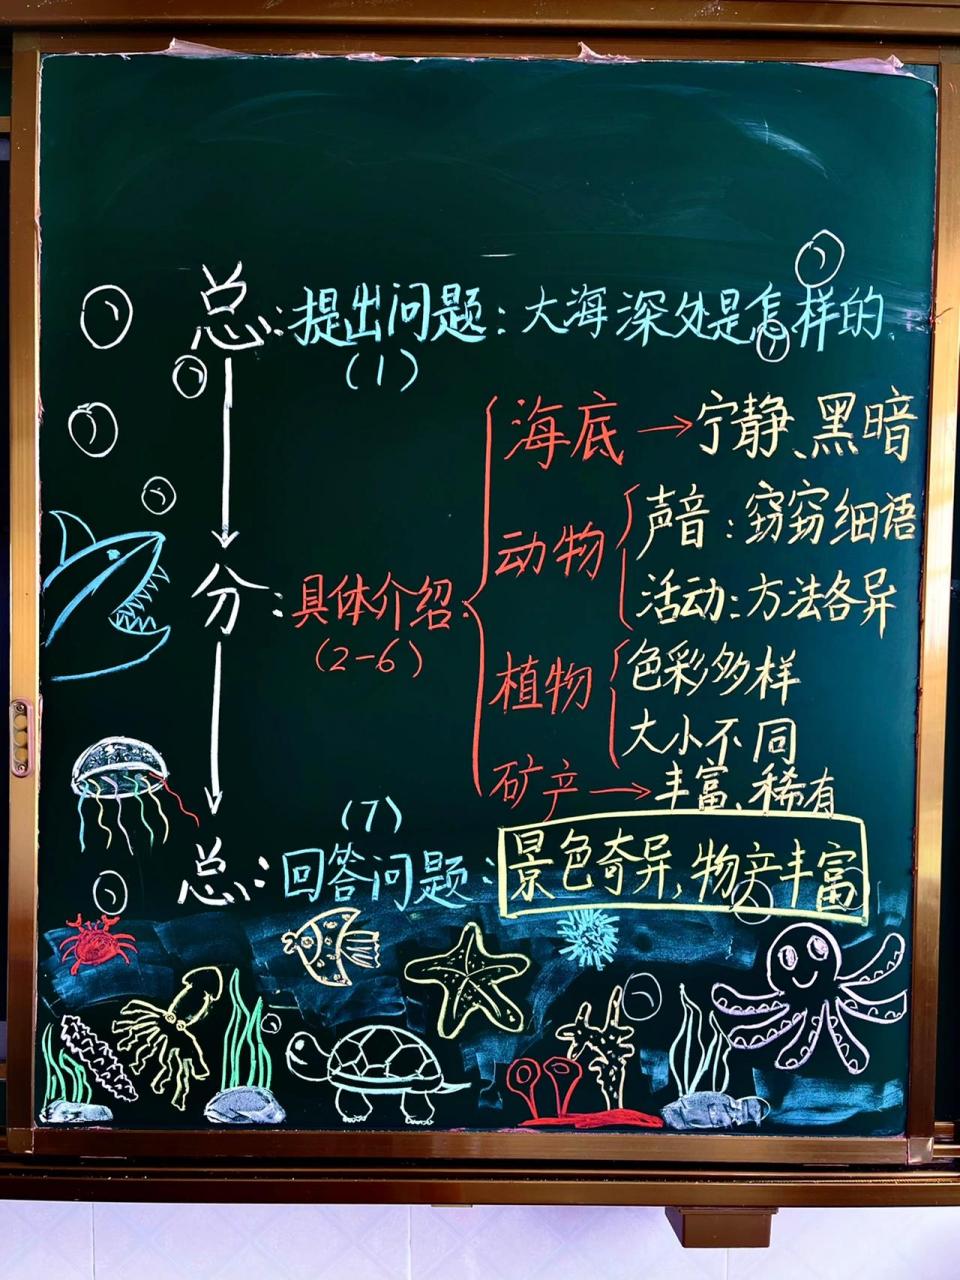 总:提出问题:大海深处是怎样的.
(1)
海底→宁静、黑暗
动物
声音:窃窃细语
活动:方法各异
分:具体介绍:
(2-6)
植物
色彩多样
大小不同
矿产→丰富、稀有
(7)
总:回答问题:景色奇异,物产丰富